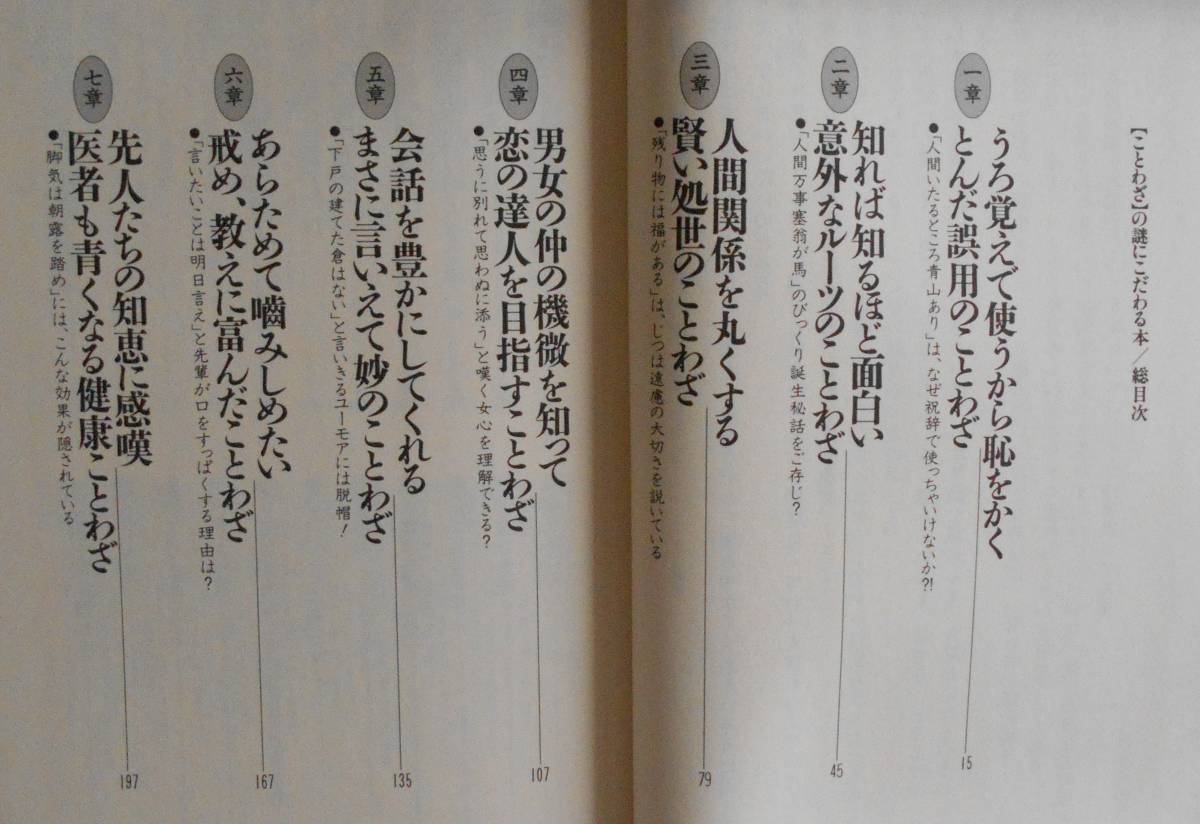 【ことわざ】の謎にこだわる本／総目次
一章
うろ覚えで使うから恥をかく
とんだ誤用のことわざ
15
●「人間いたるところ青山あり」は、なぜ祝辞で使っちゃいけないか?!
二章
知れば知るほど面白い
意外なルーツのことわざ
45
●「人間万事塞翁が馬」のびっくり誕生秘話をご存じ？
三章
人間関係を丸くする
賢い処世のことわざ
79
●「残り物には福がある」は、じつは遠慮の大切さを説いている
四章
男女の仲の機微を知って
恋の達人を目指すことわざ
107
●「思うに別れて思わぬに添う」と嘆く女心を理解できる？
五章
会話を豊かにしてくれる
まさに言いえて妙のことわざ
135
●「下戸の建てた倉はない」と言いきるユーモアには脱帽！
六章
あらためて嚙みしめたい
戒め、教えに富んだことわざ
167
●「言いたいことは明日言え」と先輩が口をすっぱくする理由は？
七章
先人たちの知恵に感嘆
医者も青くなる健康ことわざ
197
●「脚気は朝露を踏め」には、こんな効果が隠されている